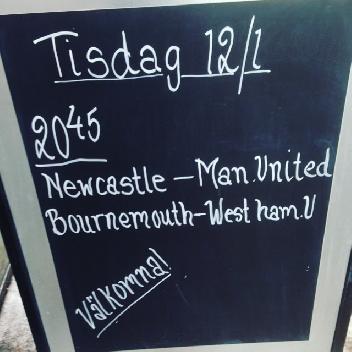 Tisdag 12/1
2045
Newcastle - Man.United
Bournemouth-West ham.U
Välkomna!